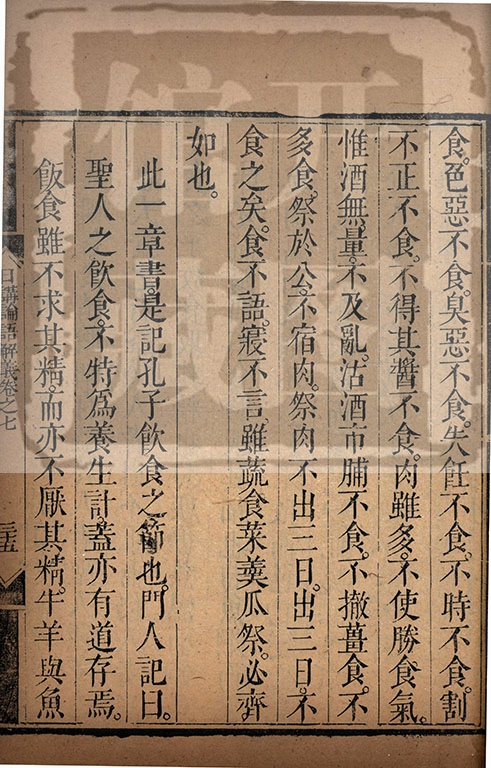 食。色惡不食。臭惡不食。失飪不食。不時不食。割
不正不食。不得其醬不食。肉雖多。不使勝食氣。
惟酒無量。不及亂。沽酒市脯不食。不撤薑食。不
多食。祭於公。不宿肉。祭肉不出三日。出三日。不
食之矣。食不語。寢不言。雖蔬食菜羹瓜祭。必齊
如也。
此一章書是記孔子飲食之節也。門人記曰。
聖人之飲食。不特爲養生計。蓋亦有道存焉。
飯食雖不求其精。而亦不厭其精。牛羊與魚
日講論語解義卷之七
三十五